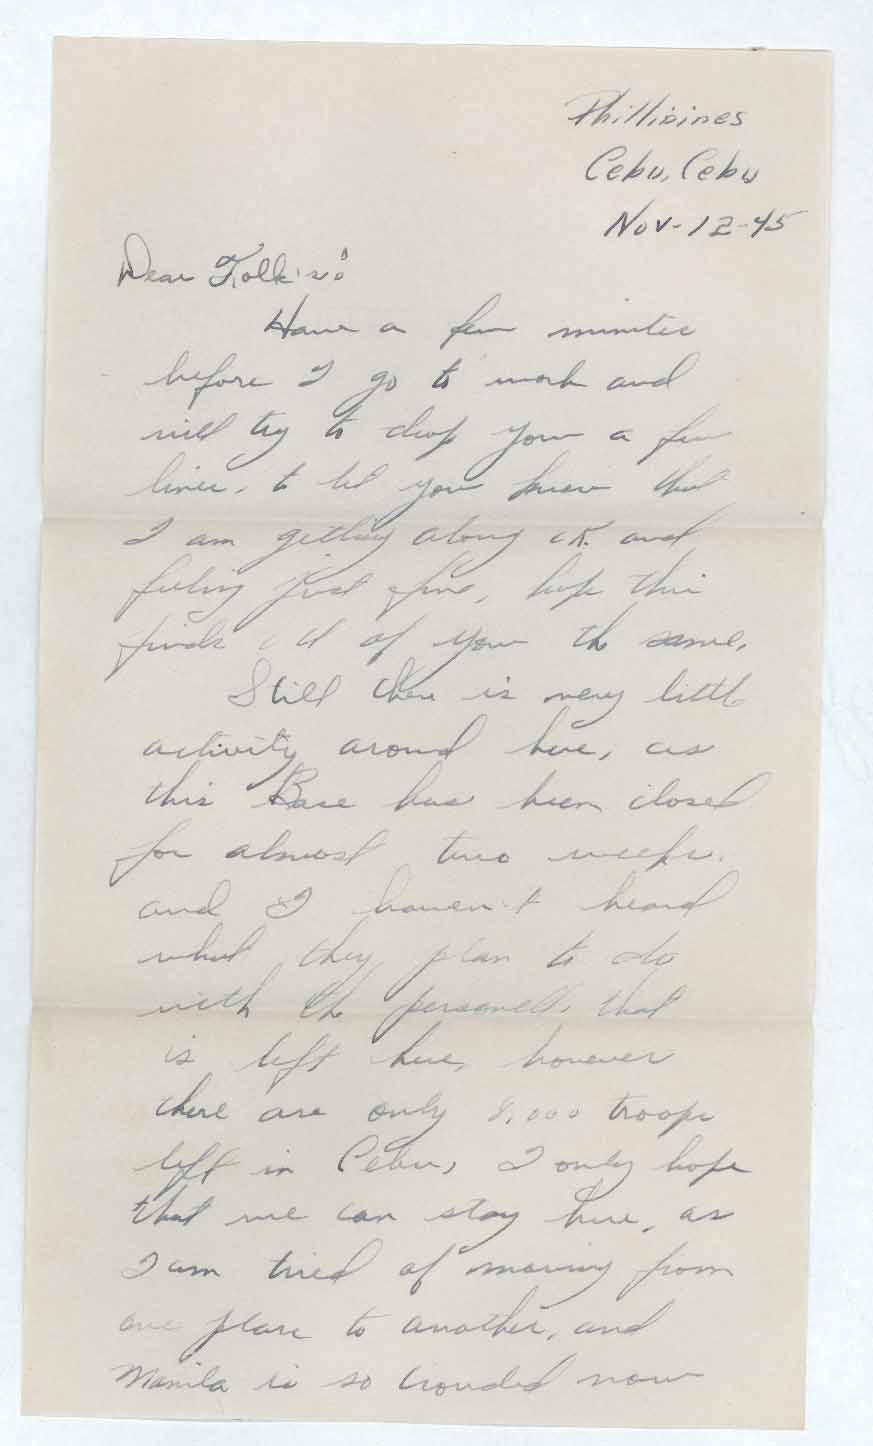 Phillipines
Cebu, Cebu
Nov-12-45
Dear Folk's:
Have a few minites
before I go to work and
will try to drop you a few
lines, to let you know that
I am getting along OK. and
feeling just fine, hope this
finds all of you the same.
Still there is very little
activity around here, as
this Base has been closed
for almost two weeks.
and I haven't heard
what they plan to do
with the personell, that
is left here, however
there are only 8,000 troops
left in Cebu, I only hope
that we can stay here, as
I am tired of moving from
one place to another, and
Manila is so crouded now